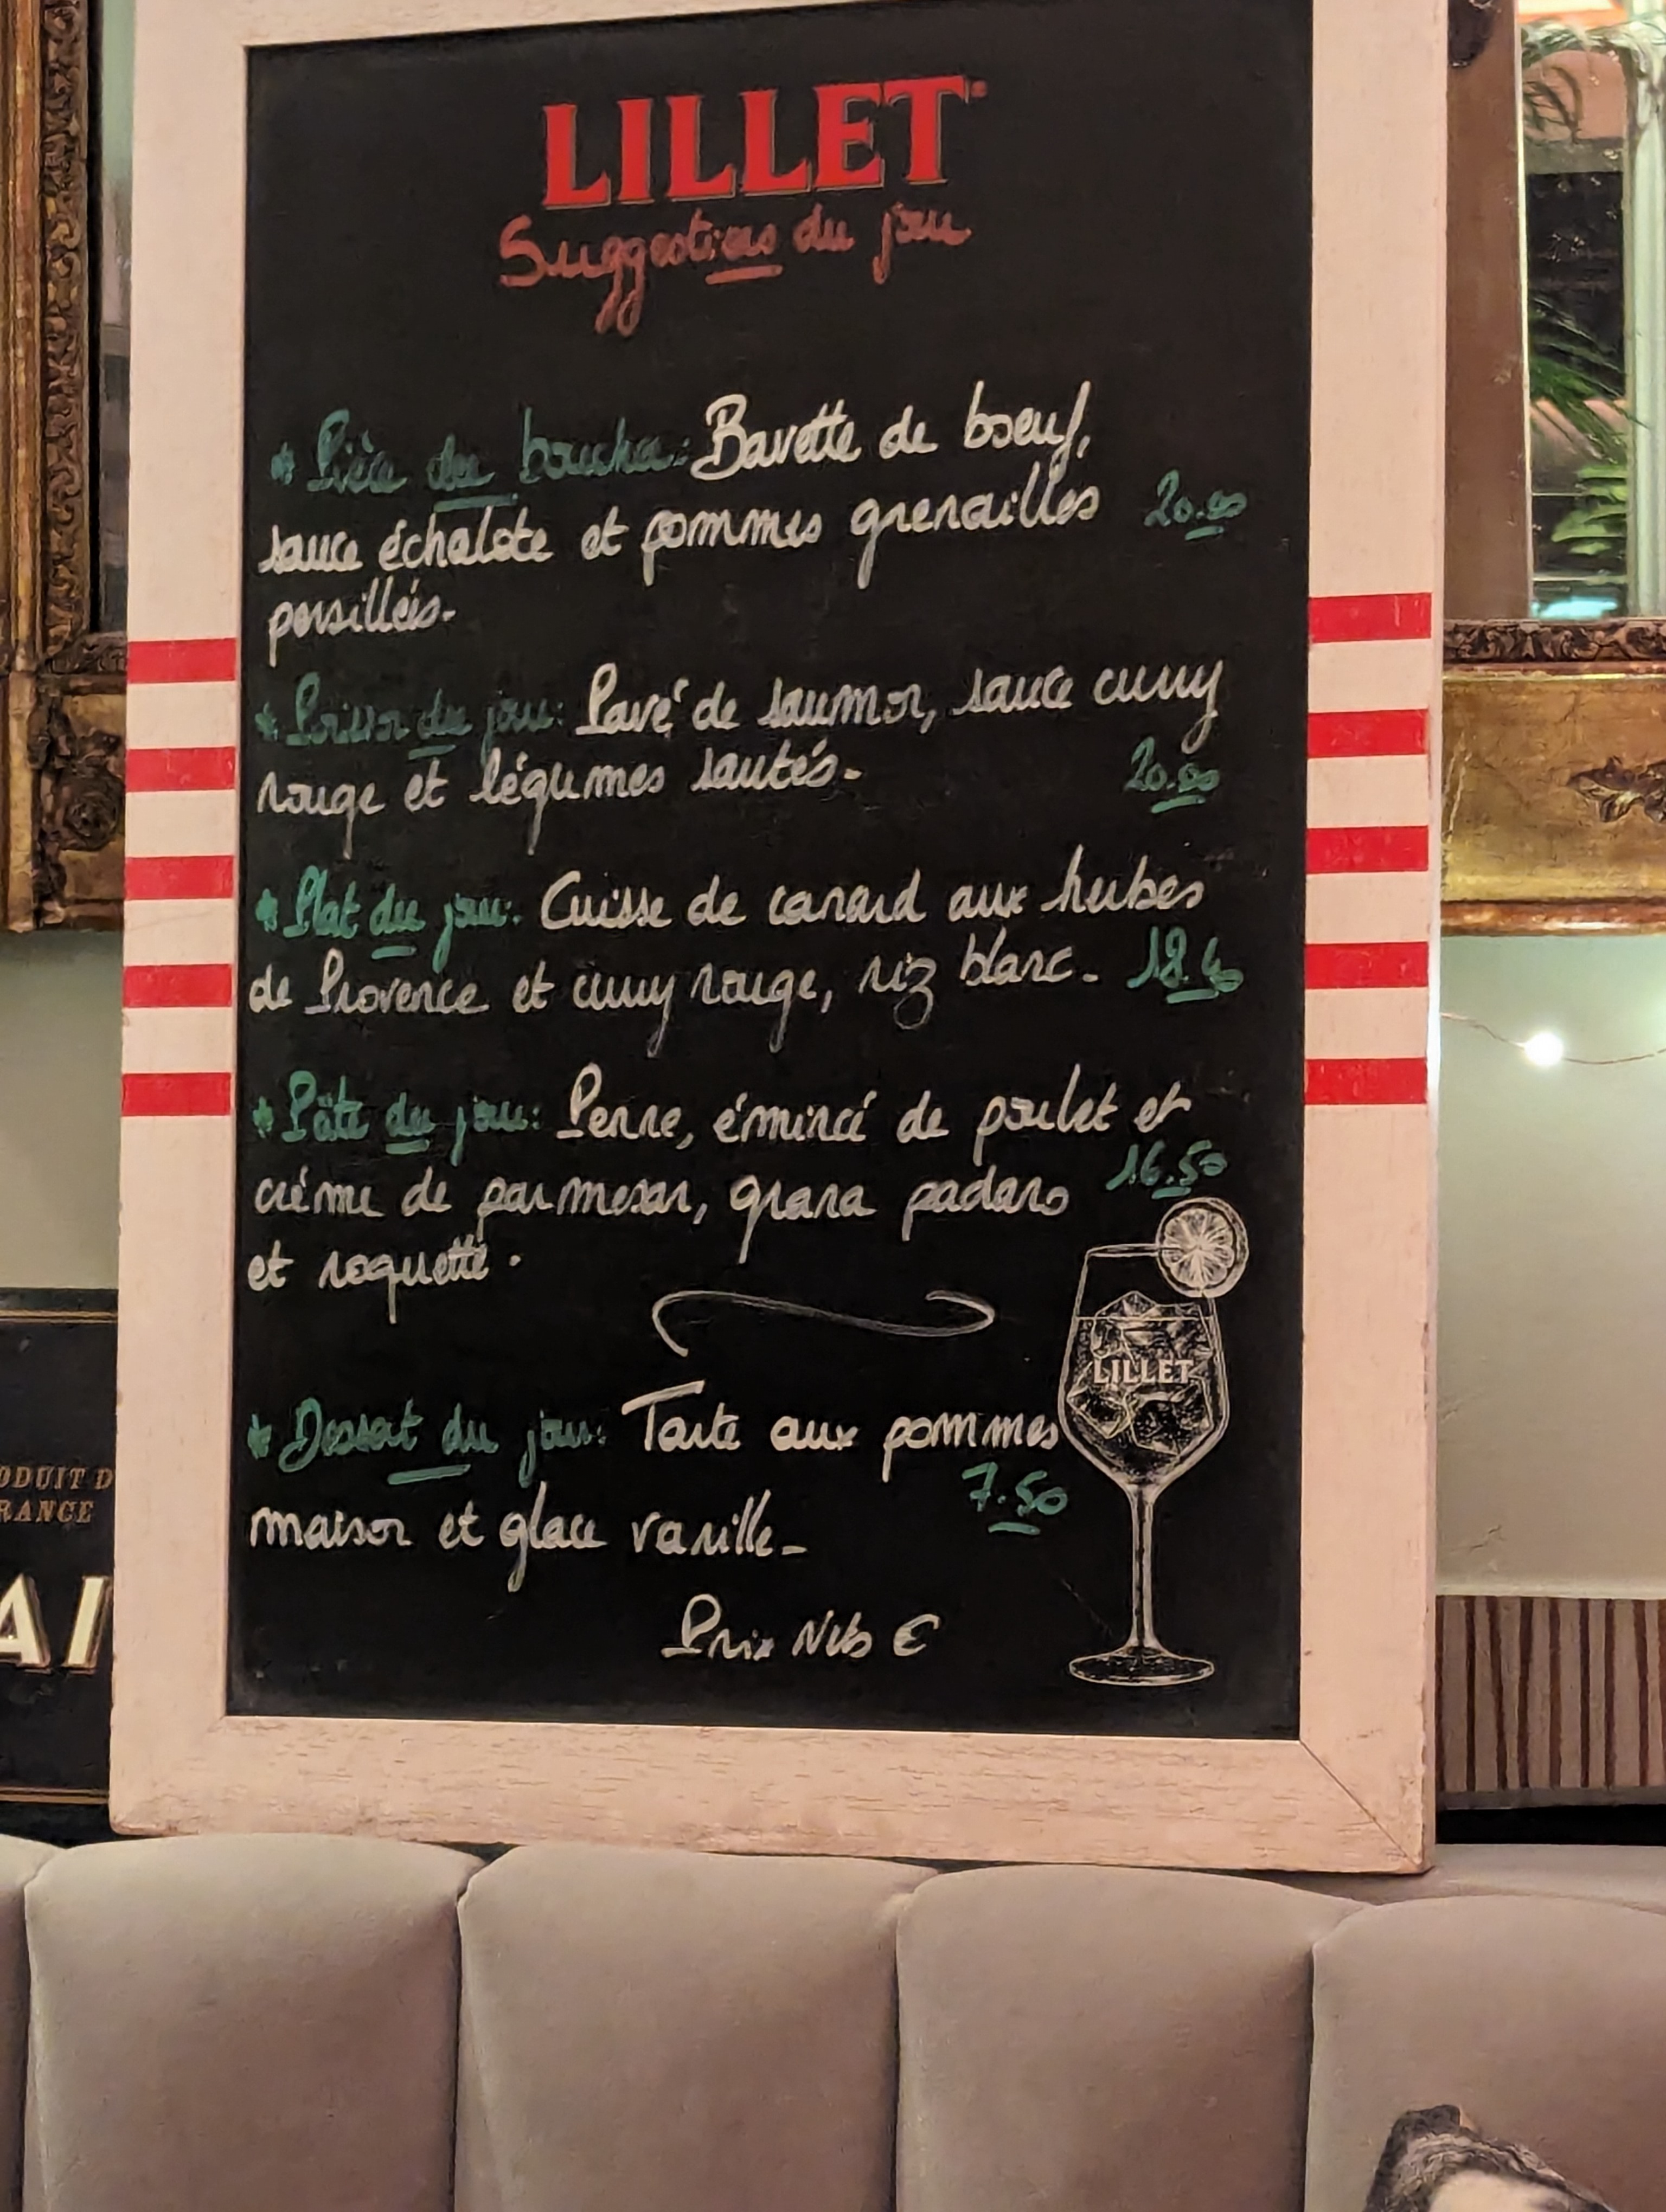 LILLET
Suggestions du jour
* Pièce du boucher: Bavette de boeuf,
sauce échalote et pommes grenailles 20.00
persillées.
* Poisson du jour: Pavé de saumon, sauce curry
rouge et légumes sautés. 20.00
* Plat du jour: Cuisse de canard aux herbes
de Provence et curry rouge, riz blanc.
* Pâte du jour: Penne, émincé de poulet et
16.50
crème de parmesan, grana padano
et roquette.
LILLET
* Dessert du jour: Tarte aux pommes
7.50
maison et glace vanille.
Prix Nets €
ODUIT D
RANCE
AI